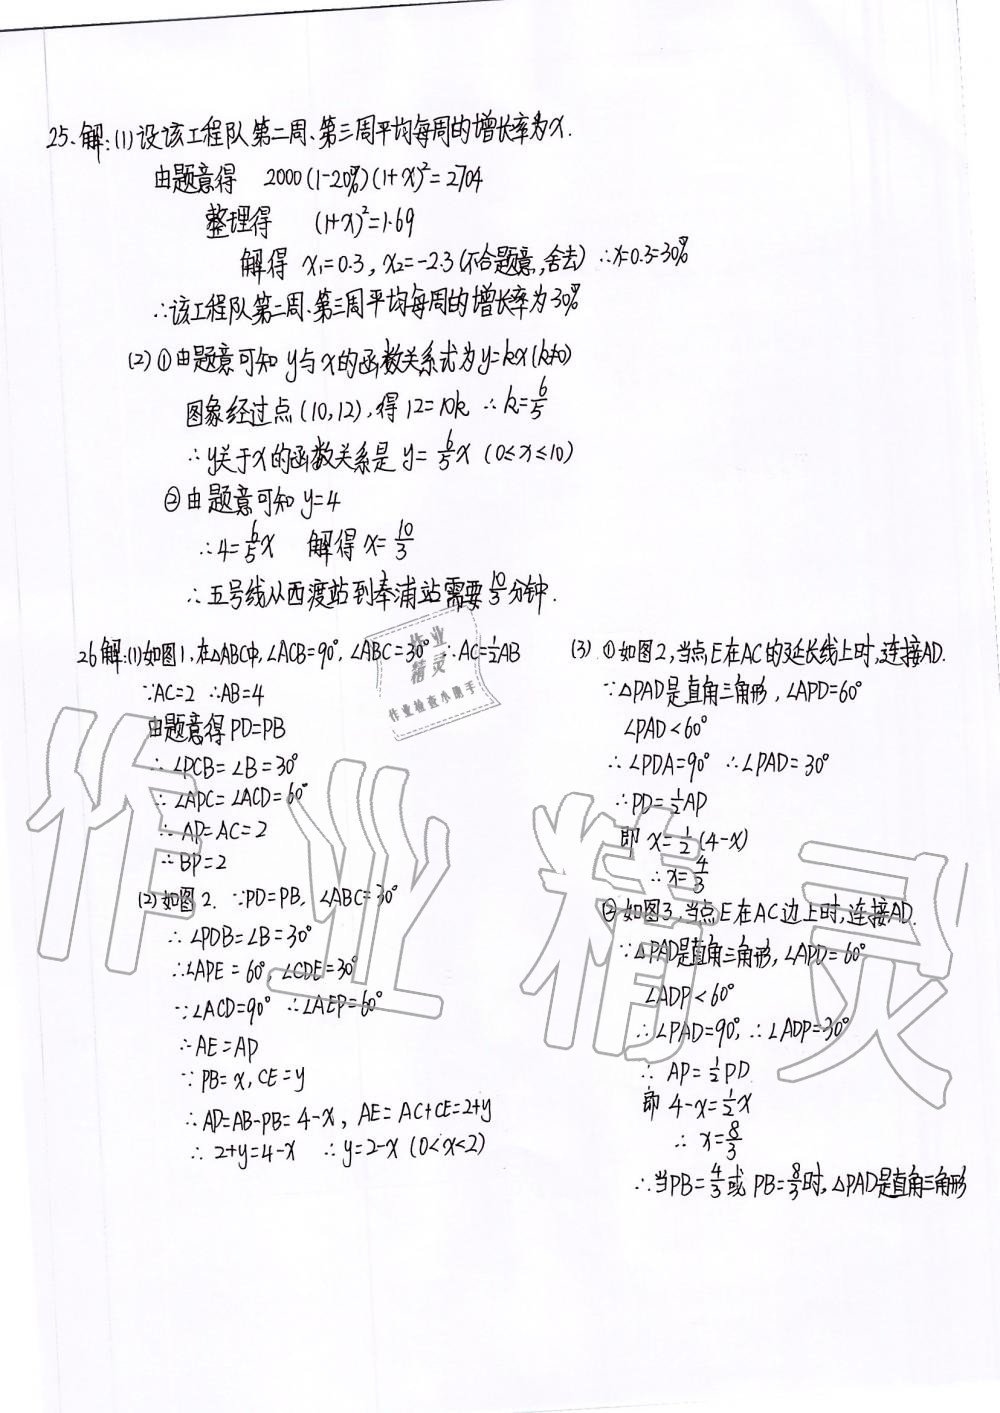 25、解:(1)设该工程队第二周、第三周平均每周的增长率为x.
由题意得 2000(1-20%)(1+x)²=2704
整理得 (1+x)²=1.69
解得 x₁=0.3, x₂=-2.3(不合题意,舍去) ∴x=0.3=30%
∴该工程队第二周、第三周平均每周的增长率为30%
(2)①由题意可知 y与x的函数关系式为y=kx(k≠0)
图象经过点(10,12),得12=10k ∴k=6/5
∴y关于x的函数关系是 y=6/5x (0≤x≤10)
②由题意可知 y=4
∴4=6/5x 解得x=10/3
∴五号线从西渡站到奉浦站需要10/3分钟.
26解:(1)如图1,在△ABC中,∠ACB=90°,∠ABC=30° ∴AC=1/2AB
∵AC=2 ∴AB=4
由题意得PD=PB
∴∠PCB=∠B=30°
∴∠APC=∠ACD=60°
∴AP=AC=2
∴BP=2
(2)如图2. ∵PD=PB, ∠ABC=30°
∴∠PDB=∠B=30°
∴∠APE=60°,∠CDE=30°
∵∠ACD=90° ∴∠AEP=60°
∴AE=AP
∵PB=x, CE=y
∴AP=AB-PB=4-x, AE=AC+CE=2+y
∴2+y=4-x ∴y=2-x (0<x<2)
(3)①如图2,当点E在AC的延长线上时,连接AD.
∵△PAD是直角三角形,∠APD=60°
∠PAD<60°
∴∠PDA=90° ∴∠PAD=30°
∴PD=1/2AP
即 x=1/2(4-x)
∴x=4/3
②如图3,当点E在AC边上时,连接AD.
∵△PAD是直角三角形,∠APD=60°
∠ADP<60°
∴∠PAD=90°, ∴∠ADP=30°
∴AP=1/2PD
即 4-x=1/2x
∴x=8/3
∴当PB=4/3或PB=8/3时,△PAD是直角三角形
作业
精灵
作业检查小助手
作业精灵